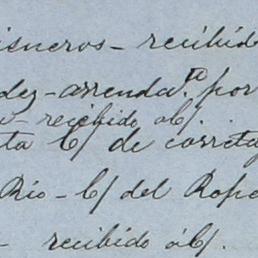 isneros - recibid
dez - arrenda.ta por
recibido á C/.
ta C/ de correta
Rio - C/ del Rope
- recibido á C/.